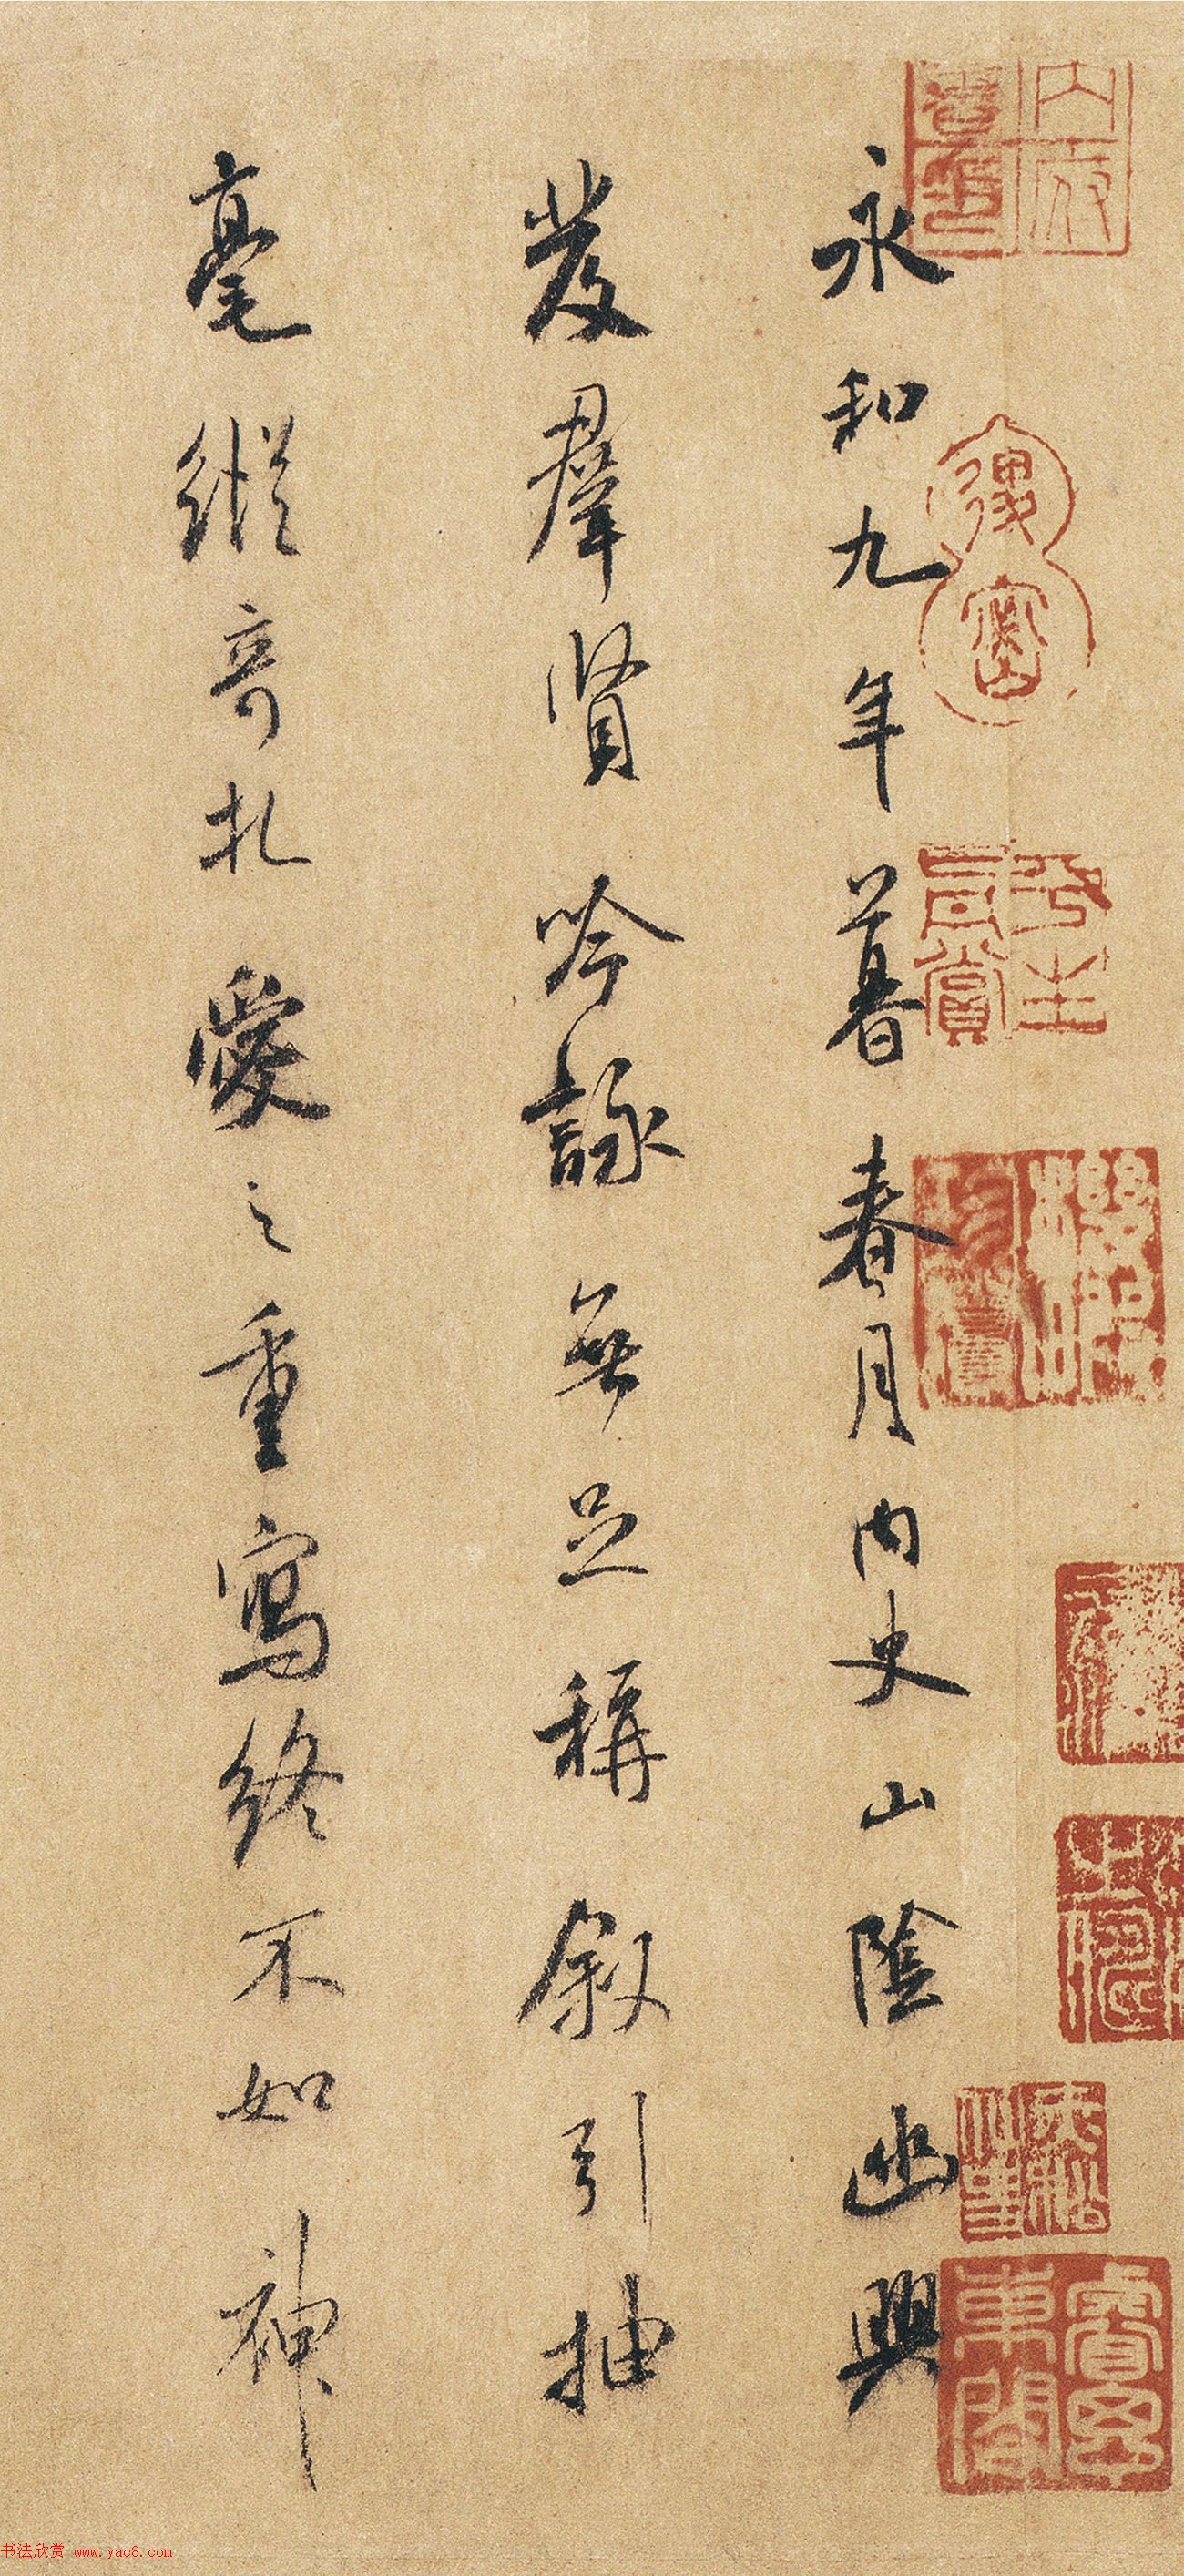 永和九年暮春月内史山陰幽興
發羣賢吟詠無足稱叙引抽
毫縱奇札愛之重寫終不如神
内府書印
復密
公主
賞
書法欣赏 www.yac8.com